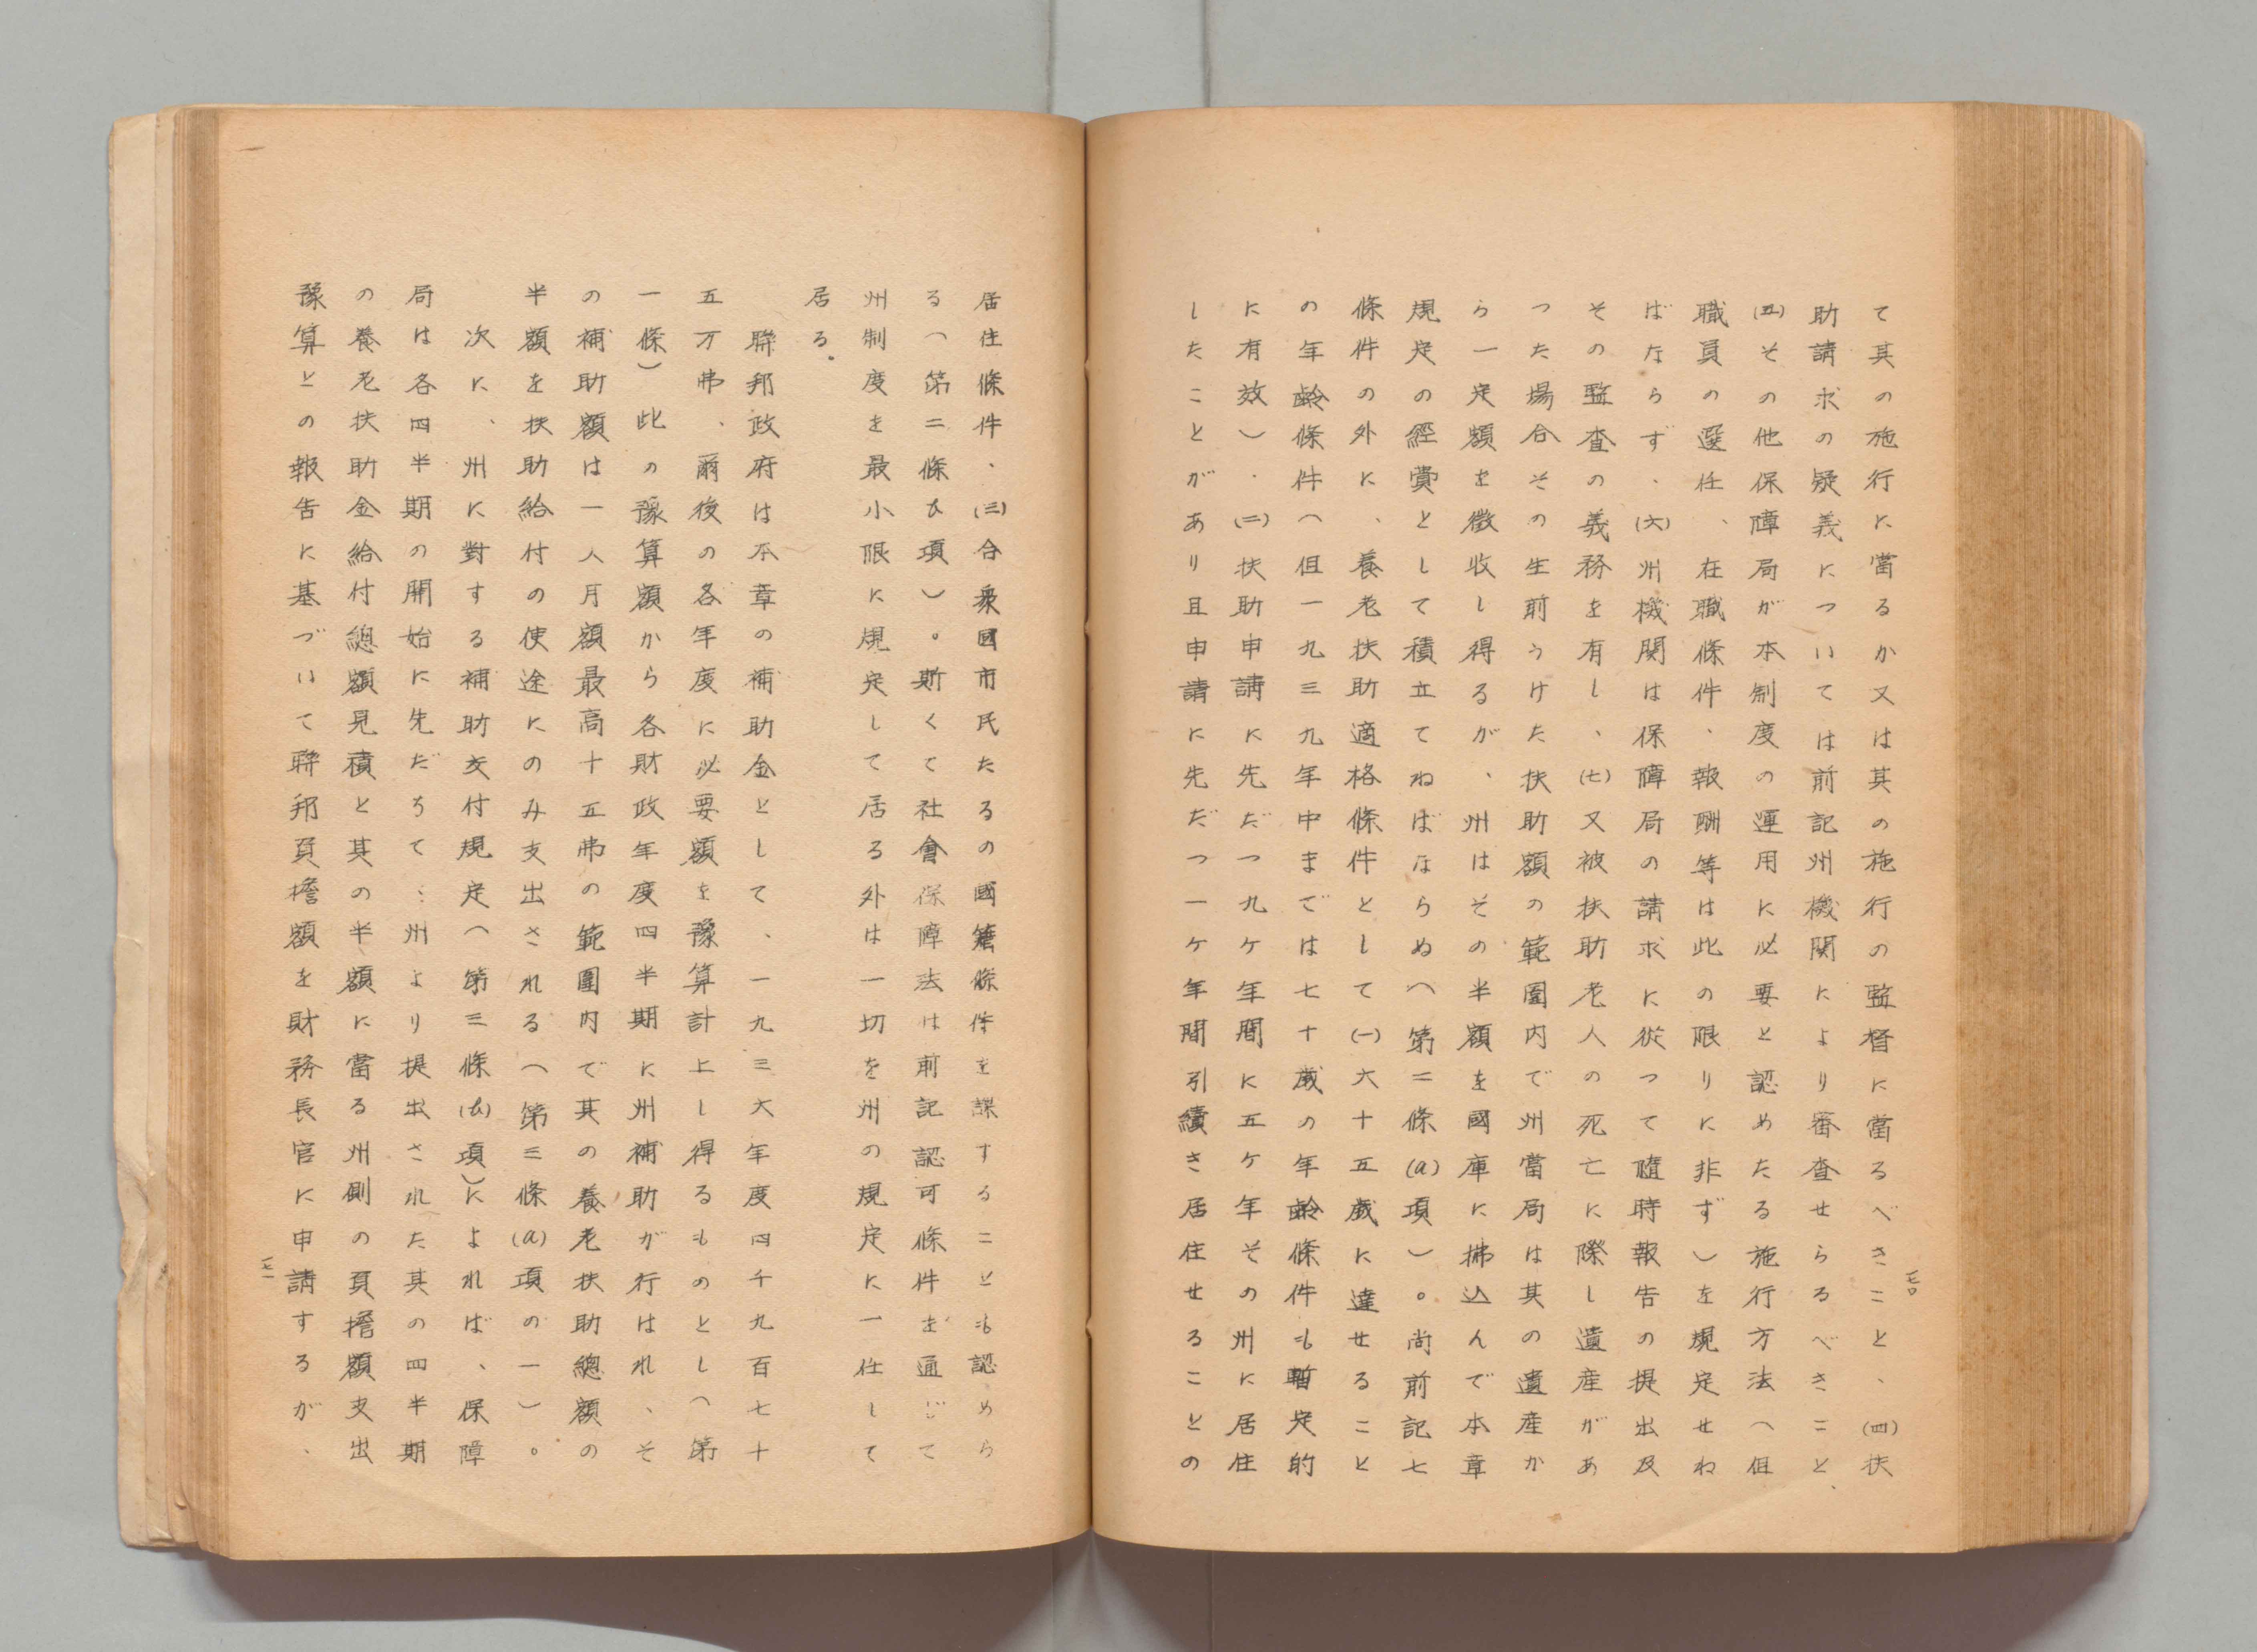 て其の施行に當るか又は其の施行の監督に當るべきこと、(四)扶
助請求の疑義については前記州機関により審査せらるべきこと、
(五)その他保障局が本制度の運用に必要と認めたる施行方法(但
職員の選任、在職條件、報酬等は此の限りに非ず)を規定せね
ばならず、(六)州機関は保障局の請求に從つて隨時報告の提出及
その監査の義務を有し、(七)又被扶助老人の死亡に際し遺産があ
つた場合その生前うけた扶助額の範圍内で州當局は其の遺産か
ら一定額を徴收し得るが、州はその半額を國庫に拂込んで本章
規定の經賞として積立てねばならぬ(第二條(a)項)。尚前記七
條件の外に、養老扶助適格條件として(一)六十五歳に達せること
の年齡條件(但一九三九年中までは七十歳の年齡條件も暫定的
に有效)、(二)扶助申請に先だつ九ケ年間に五ケ年その州に居住
したことがあり且申請に先だつ一ケ年間引續き居住せることの
一七〇
居住條件、(三)合衆國市民たるの國籍條件を課することも認めら
る(第二條ひ項)。斯くて社會保障法は前記認可條件を通じて
州制度を最小限に規定して居る外は一切を州の規定に一任して
居る。
聯邦政府は本章の補助金として、一九三六年度四千九百七十
五万弗、爾後の各年度に必要額を豫算計上し得るものとし(第
一條)此の豫算額から各財政年度四半期に州補助が行はれ、そ
の補助額は一人月額最高十五弗の範圍内で其の養老扶助總額の
半額を扶助給付の使途にのみ支出される(第三條(a)項の一)。
次に、州に對する補助交付規定(第三條(b)項)によれば、保障
局は各四半期の開始に先だちて、州より提出された其の四半期
の養老扶助金給付總額見積と其の半額に當る州側の負擔額支出
豫算との報告に基づいて聯邦負擔額を財務長官に申請するが、
一七一